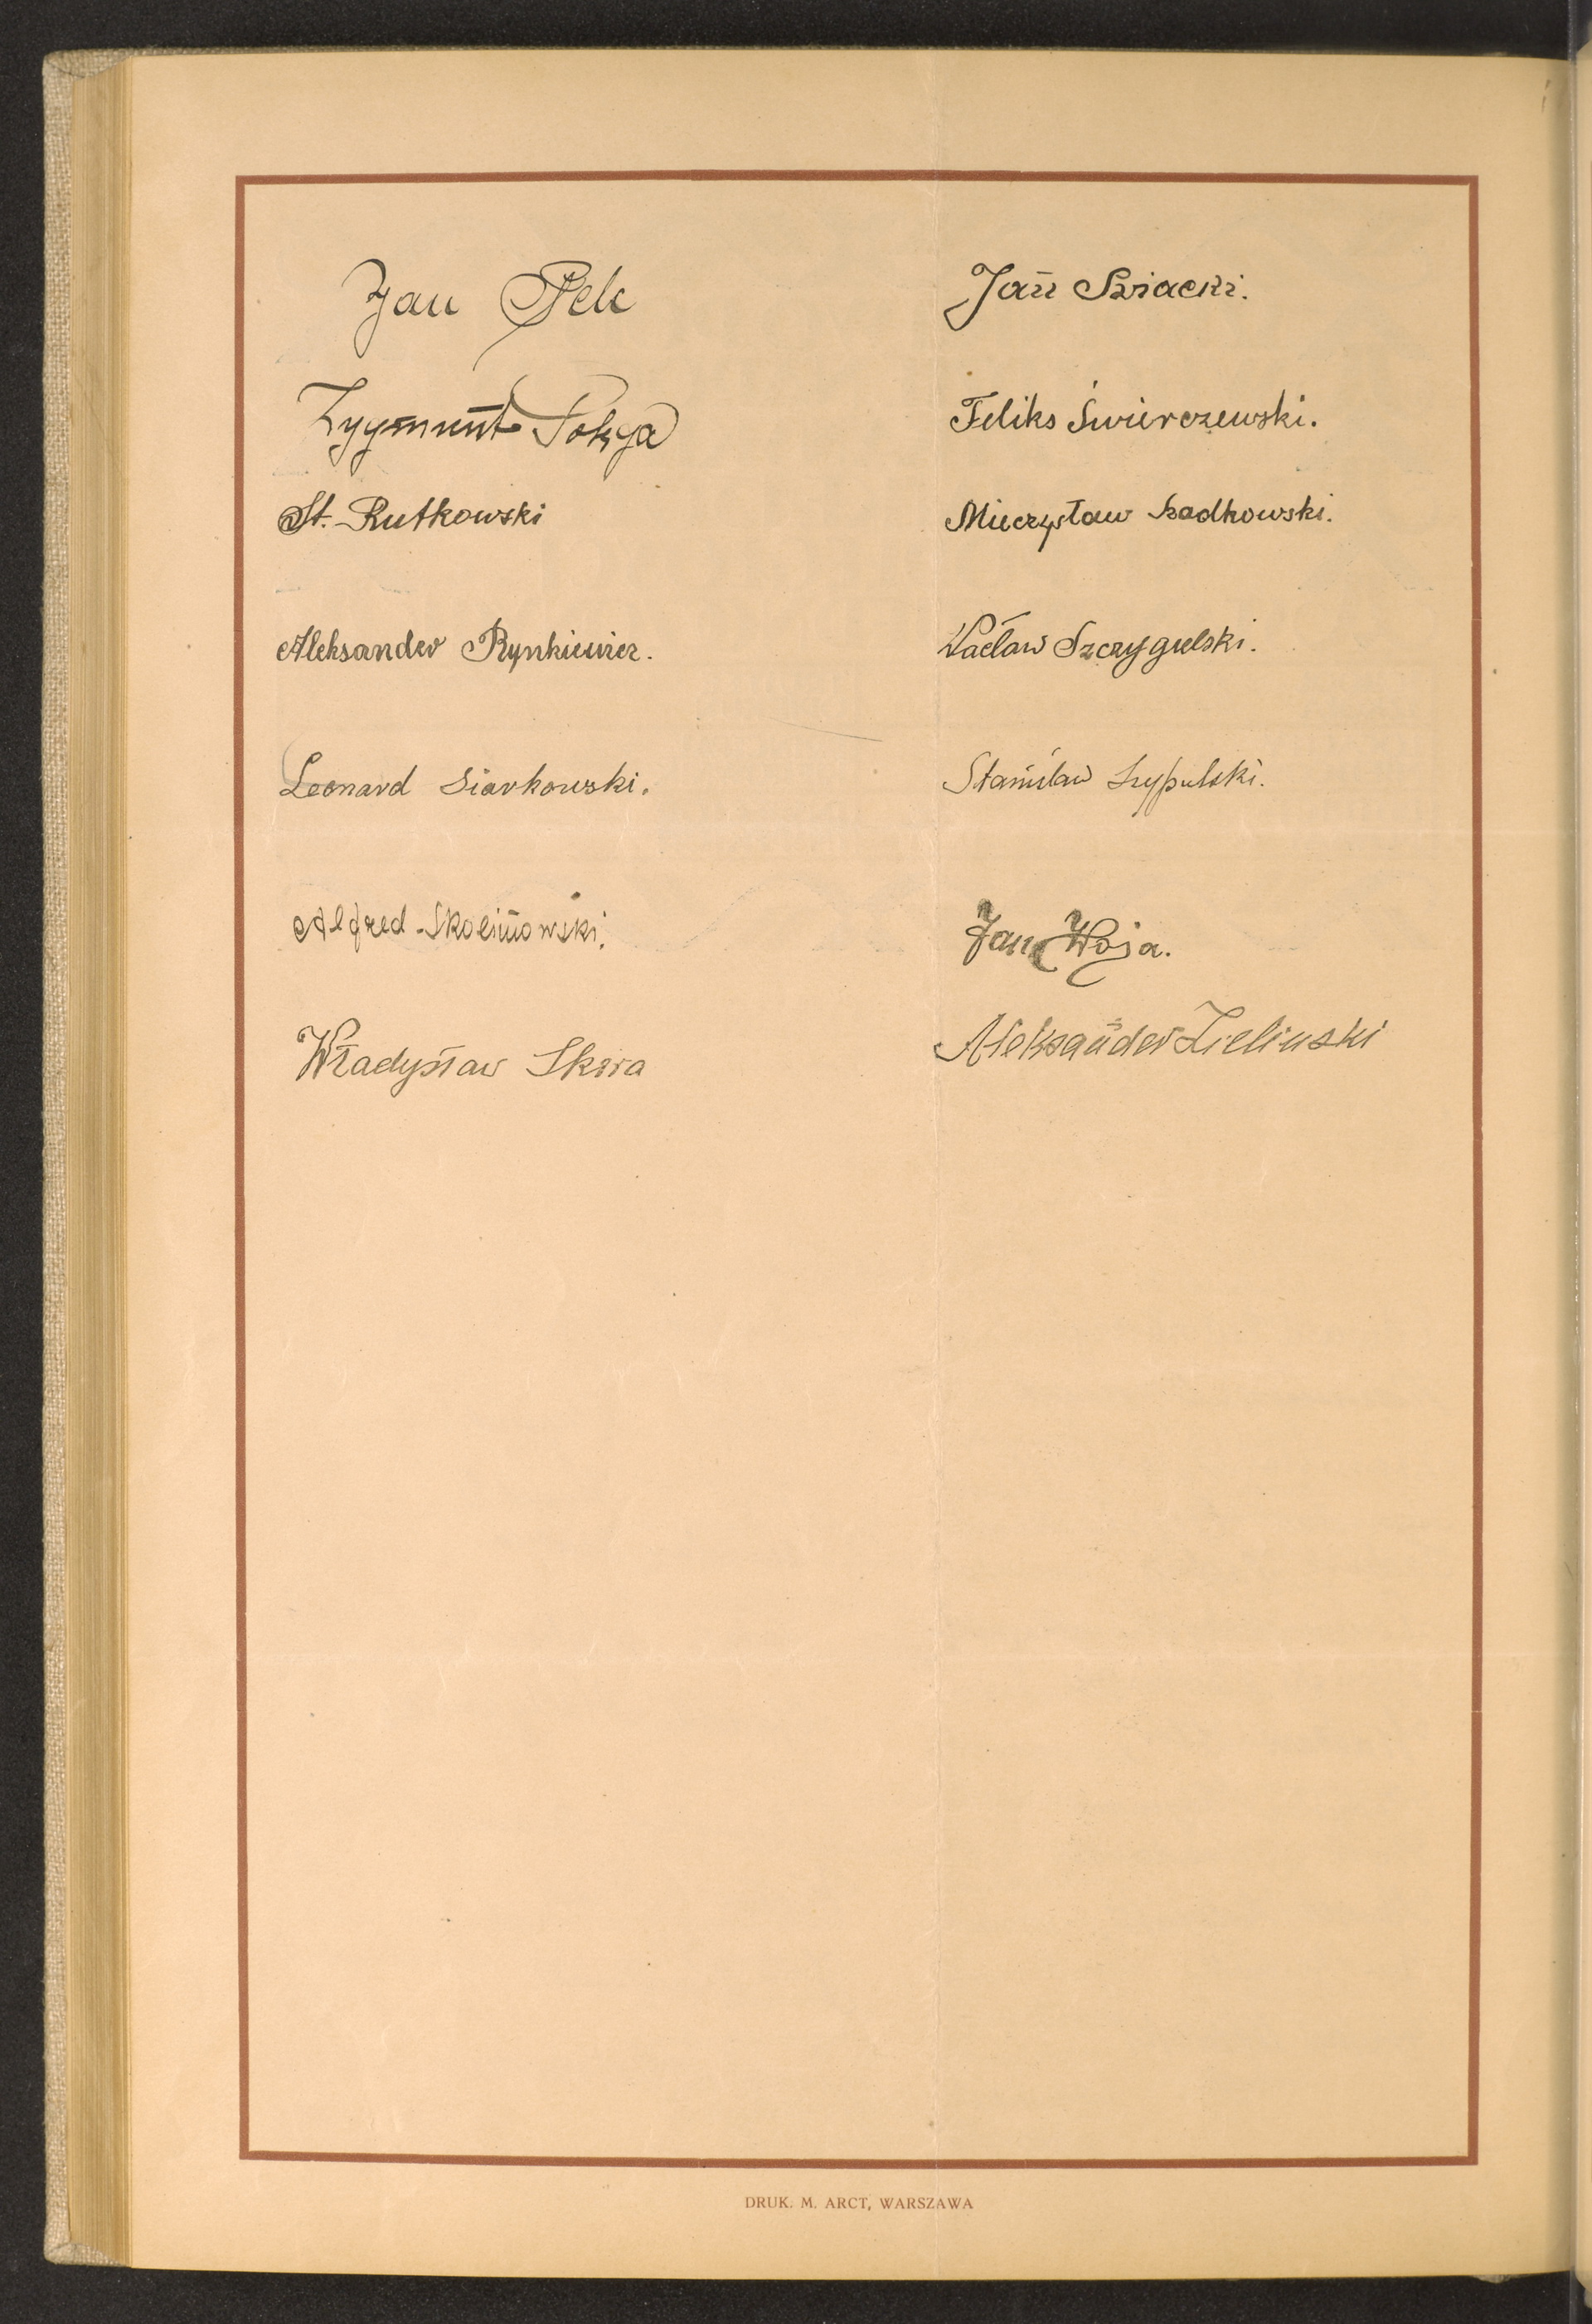 Jan Pelc
Zygmunt
St. Rutkowski
Aleksander Rynkiewicz.
Leonard Siarkowski.
Alfred Skolimowski.
Władysław Skóra
Jan
Feliks Świerczewski.
Mieczysław Sadkowski.
Wacław Szczygielski.
Stanisław Szypulski.
Jan Woja.
Aleksander Zielinski
DRUK. M. ARCT, WARSZAWA